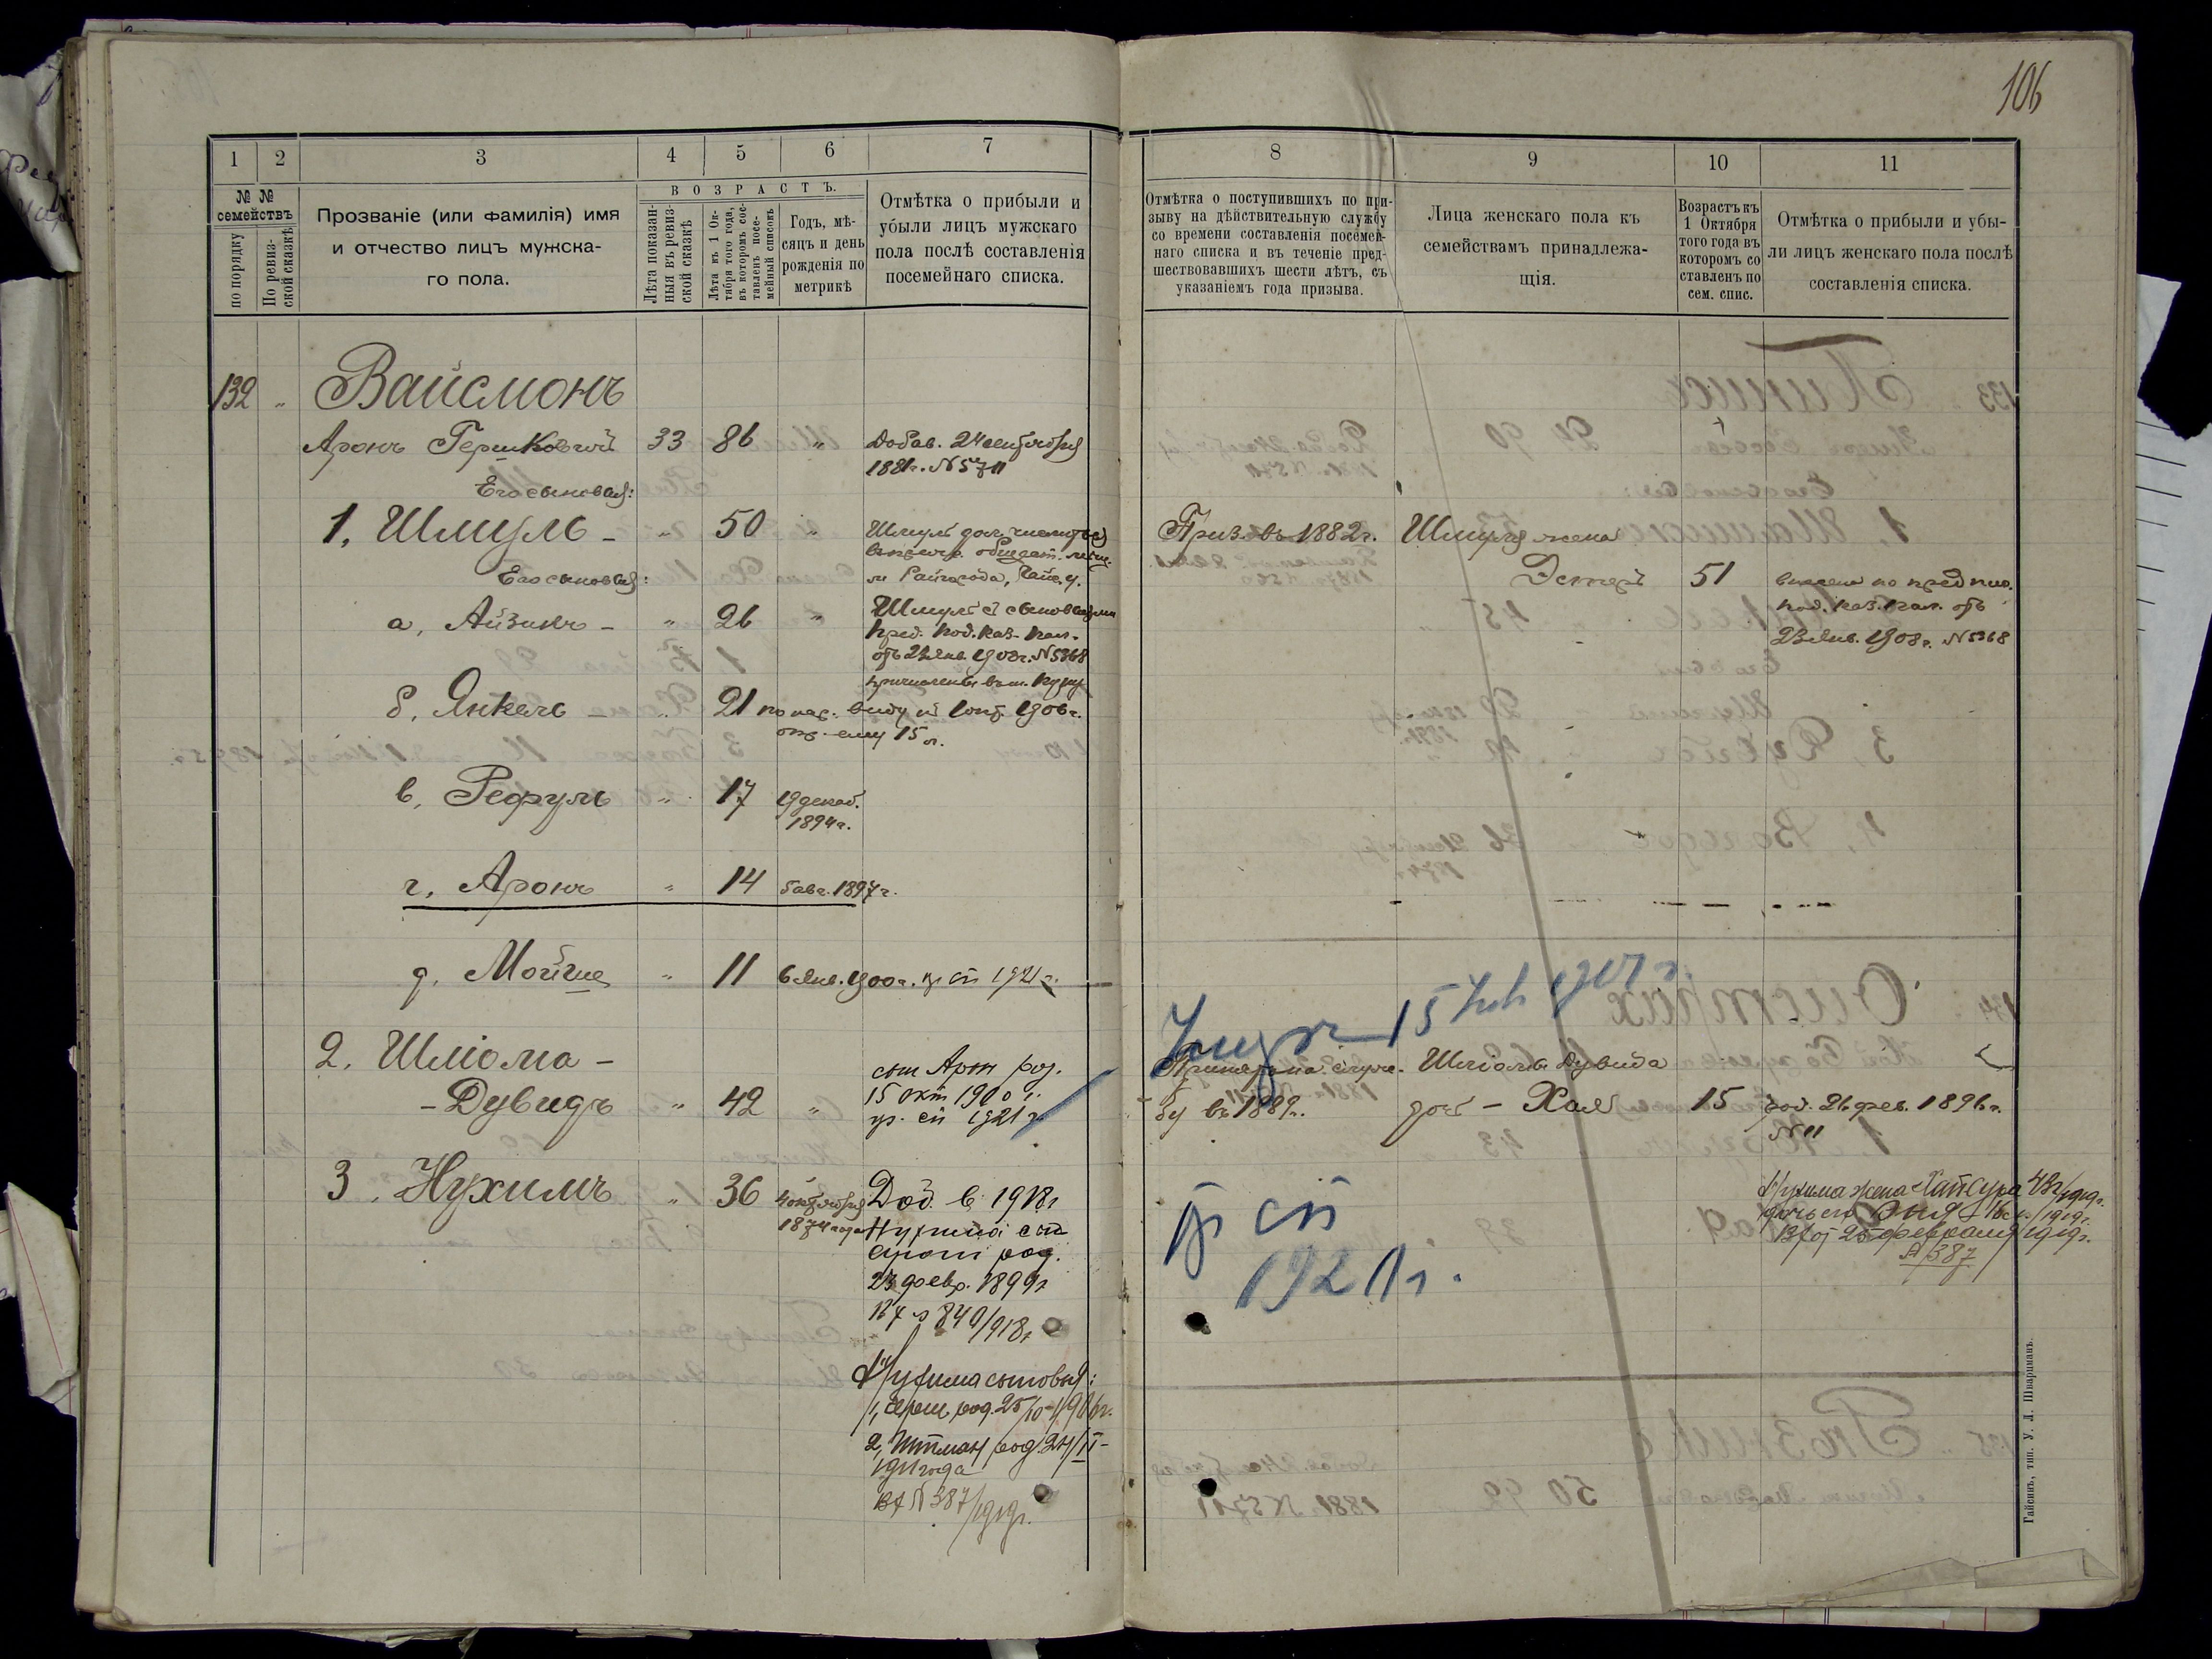 106
1
2
3
4
5
6
7
8
9
10
11
№ №
семействъ
по порядку
По ревиз-
ской сказкѣ
Прозваніе (или фамилія) имя
и отчество лицъ мужска-
го пола.
ВОЗРАСТЪ.
Лѣта показан-
ныя въ ревиз-
ской сказкѣ
Лѣта къ 1 Ок-
тября того года,
въ которомъ сос-
тавленъ посе-
мейный списокъ
Годъ, мѣ-
сяцъ и день
рожденія по
метрикѣ
Отмѣтка о прибыли и
убыли лицъ мужскаго
пола послѣ составленія
посемейнаго списка.
Отмѣтка о поступившихъ по при-
зыву на дѣйствительную службу
со времени составленія посемей-
наго списка и въ теченіе пред-
шествовавшихъ шести лѣтъ, съ
указаніемъ года призыва.
Лица женскаго пола къ
семействамъ принадлежа-
щія.
Возрастъ къ
1 Октября
того года въ
которомъ со
ставленъ по
сем. спис.
Отмѣтка о прибыли и убы-
ли лицъ женскаго пола послѣ
составленія списка.
132 " Вайсмонъ
Аронъ Гершковичъ 33 86 " Добав. 24 сентября
1881г. № 5711
Его сыновья:
1, Шмуль - " 50 "
Призв. въ 1882г. Шмуля жена
Его сыновья:
Эстеръ 51 внесена по предпис.
Под. Каз. Пал. отъ
23 Янв. 1908г. № 5368
а, Айзикъ - " 26 " Шмуль съ сыновьями
пред. Под. Каз. Пал.
отъ 23 Янв. 1908г. № 5368
б, Янкель - " 21 по нар. виду къ 1 окт. 1906г.
ему 15 л.
в, Рефуль " 17 19 декаб.
1894г.
г, Аронъ " 14 5 авг. 1897г.
д. Мойше " 11 6 Янв. 1900г. пр сп 1921г.
2. Шліома -
- Дувидъ " 42 "
сын Арон род.
15 окт 1900 г.
пр. сп 1921 г
15 1907 г.
бу въ 1889г.
Шліомы Дувида
доч - Хая 15 род. 26 фев. 1896г.
№ 11
пр сп
1921 г.
3. Нухимъ " 36 4 октября
1874 года
Доб. в 1918г
Нухима сын
Арон род.
23 февр. 1899г
840/918г
Нухима сыновья:
1, Герш, род. 25/10-1906г.
2, род. 24/II-
1911 года
№ 387/1919г.
Нухима жена Сура 43г/1919г.
дочь его
25 февраля 1919г.
№ 387
Гайсинъ, тип. У. Л. Шварцманъ.